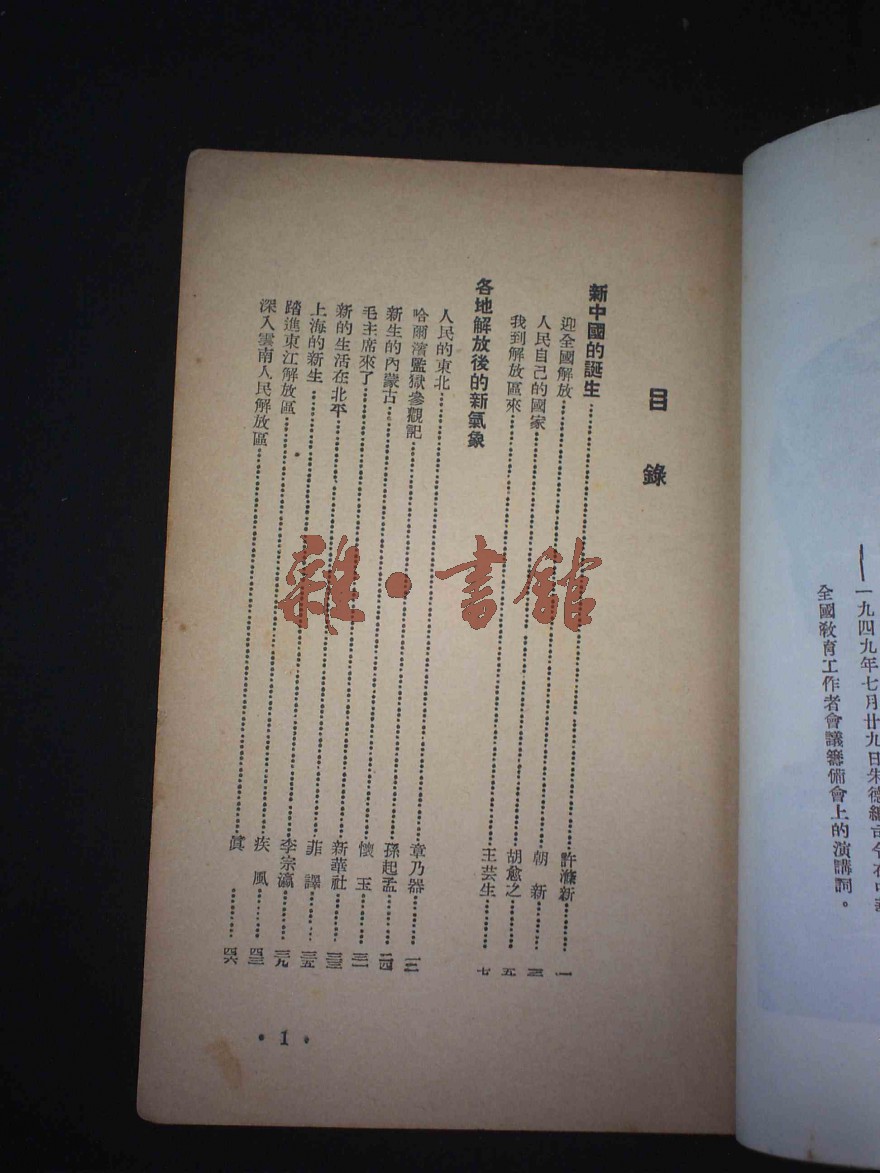 ——一九四九年七月廿九日朱德總司令在中華
全國教育工作者會議籌備會上的演講詞。
目錄
新中國的誕生……許滌新……一
迎全國解放……朝新……三
人民自己的國家……胡愈之……五
我到解放區來……王芸生……七
各地解放後的新氣象
人民的東北……章乃器……一二
哈爾濱監獄參觀記……孫起孟……二四
新生的內蒙古……懷玉……三一
毛主席來了……新華社……三三
新的生活在北平……菲譯……三五
上海的新生……李宗瀛……三九
踏進東江解放區……疾風……四三
深入雲南人民解放區……眞……四六
·1·
雜·書館